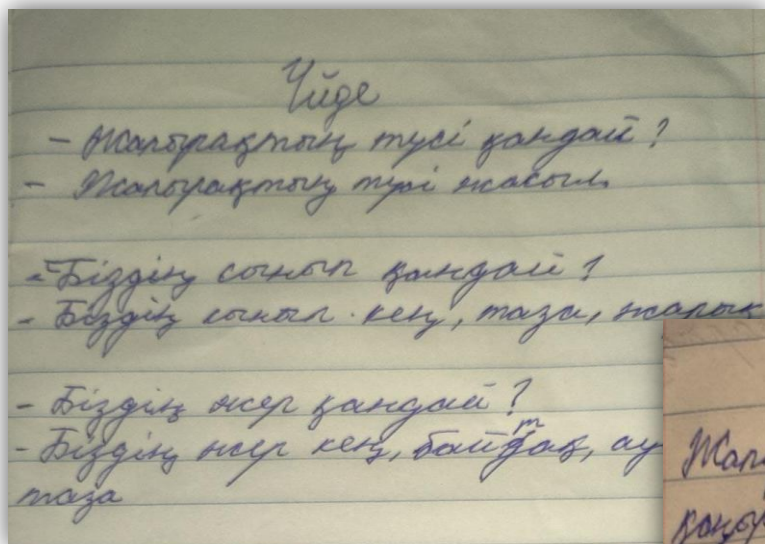 Үйде
- Жапырақтың түсі қандай?
- Жапырақтың түсі жасыл.
- Біздің сынып қандай?
- Біздің сынып кең, таза, жарық
- Біздің жер қандай?
- Біздің жер кең, байтақ, ау
таза